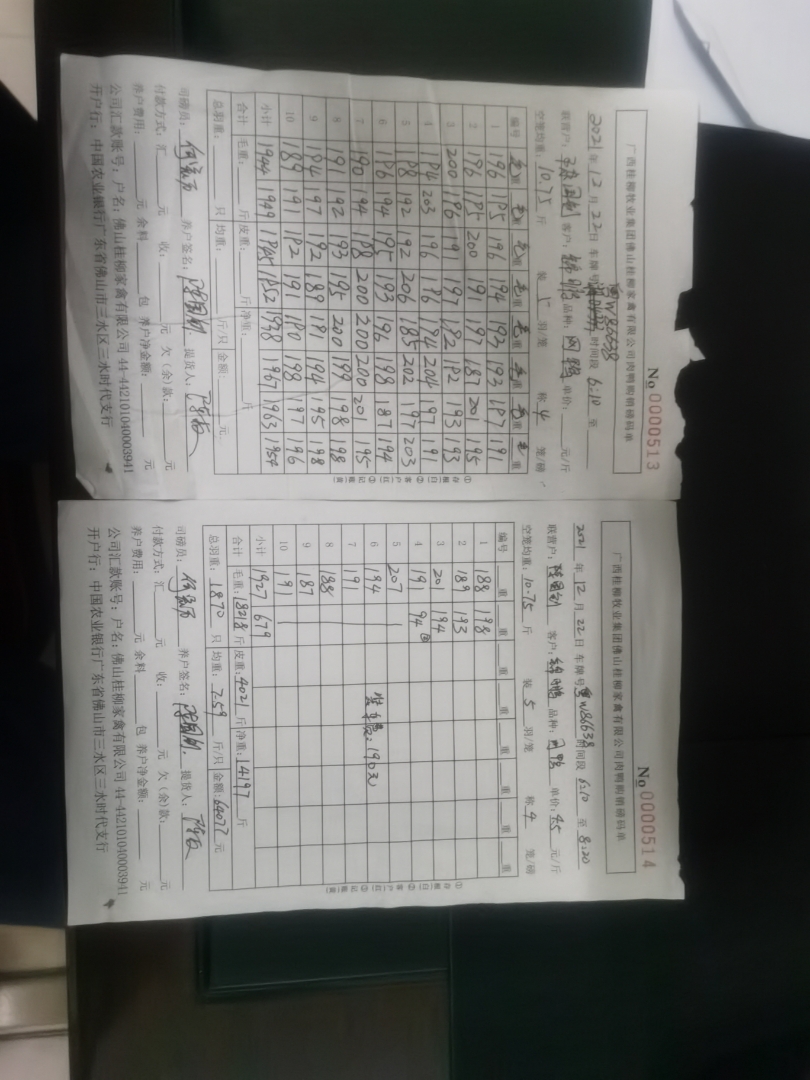 No 0000513
广西桂柳牧业集团佛山桂柳家禽有限公司肉鸭购销磅码单
2021 年 12 月 22 日 车牌号 粤W86638 时间段 6:10 至
联营户: 客户: 品种: 单价: 元/斤
空笼均重: 10.75 斤 装 5 羽/笼 称 4 笼/磅
编号 毛重 毛重 毛重 毛重 毛重 毛重 毛重 毛重
1 196 195 196 194 193 193 197 191
2 196 195 200 191 197 187 201 195
3 200 196 191 197 192 192 193 193
4 194 203 196 196 194 204 197 191
5 198 192 192 206 185 202 197 203
6 196 194 195 193 196 198 187 194
7 190 194 198 200 200 200 201 195
8 191 192 193 195 200 199 198 198
9 194 197 192 189 191 194 195 198
10 189 191 192 191 190 198 197 196
小计 1944 1949 1945 1952 1938 1967 1963 1954
合计 毛重: 斤 皮重: 斤 净重: 斤
总羽重: 只 均重: 斤/只 金额: 元
司磅员: 养户签名: 提货人:
付款方式: 汇 元 收: 元 欠(余)款: 元
养户费用: 元 余料 包 养户净金额: 元
公司汇款账号: 户名: 佛山桂柳家禽有限公司 44-442101040003941
开户行: 中国农业银行广东省佛山市三水区三水时代支行
①存根(白) ②客户(红) ③记账(黄)
No 0000514
广西桂柳牧业集团佛山桂柳家禽有限公司肉鸭购销磅码单
2021 年 12 月 22 日 车牌号 粤W86638 时间段 6:10 至 8:20
联营户: 客户: 品种: 单价: 4.5 元/斤
空笼均重: 10.75 斤 装 5 羽/笼 称 4 笼/磅
编号 重 重 重 重 重 重 重 重
1 188 198
2 189 193
3 201 194
4 191 94②
5 207
6 194 装车费: 190元
7 191
8 188
9 187
10 191
小计 1927 679
合计 毛重: 18218 斤 皮重: 4021 斤 净重: 14197 斤
总羽重: 1870 只 均重: 7.59 斤/只 金额: 64077 元
司磅员: 养户签名: 提货人:
付款方式: 汇 元 收: 元 欠(余)款: 元
养户费用: 元 余料 包 养户净金额: 元
公司汇款账号: 户名: 佛山桂柳家禽有限公司 44-442101040003941
开户行: 中国农业银行广东省佛山市三水区三水时代支行
①存根(白) ②客户(红) ③记账(黄)